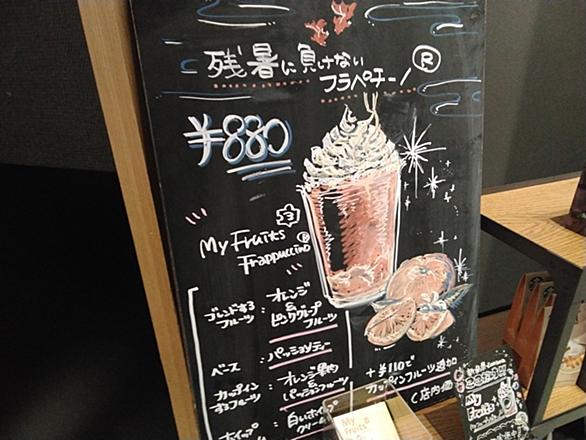 残暑に負けない
フラペチーノ®
¥880
My Fruits³
Frappuccino®
ブレンドする
フルーツ
: オレンジ
&
ピンクグレープ
フルーツ
ベース : パッションティー
カップイン
するフルーツ
: オレンジ果肉
&
パッションフルーツ
ホイップ : 白いホイップ
クリーム
+¥110で
カップインフルーツ追加
(店内価
My
Fruits